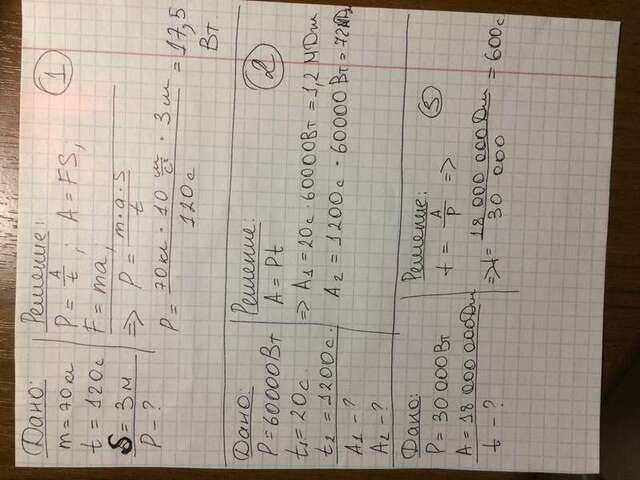 Дано:
m = 70 кг
t = 120 с
S = 3 м
P - ?
Решение:
1
P = A/t ; A = FS,
F = ma,
=> P = m·a·S/t
P = 70кг · 10 м/с² · 3м / 120 с = 17,5
Вт
Дано:
P = 60000 Вт
t₁ = 20 с.
t₂ = 1200 с.
A₁ - ?
A₂ - ?
Решение:
2
A = Pt
=> A₁ = 20 с · 60000 Вт = 1,2 МДж
A₂ = 1200 с · 60000 Вт = 72 МДж
Дано:
P = 30 000 Вт
A = 18 000 000 Дж
t - ?
Решение:
t = A/P =>
=> t = 18 000 000 Дж / 30 000 = 600 с